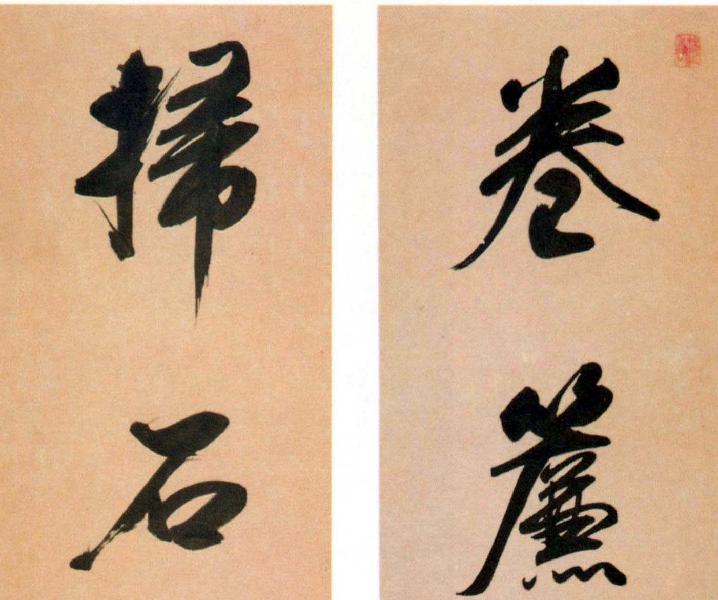 卷簾
掃石